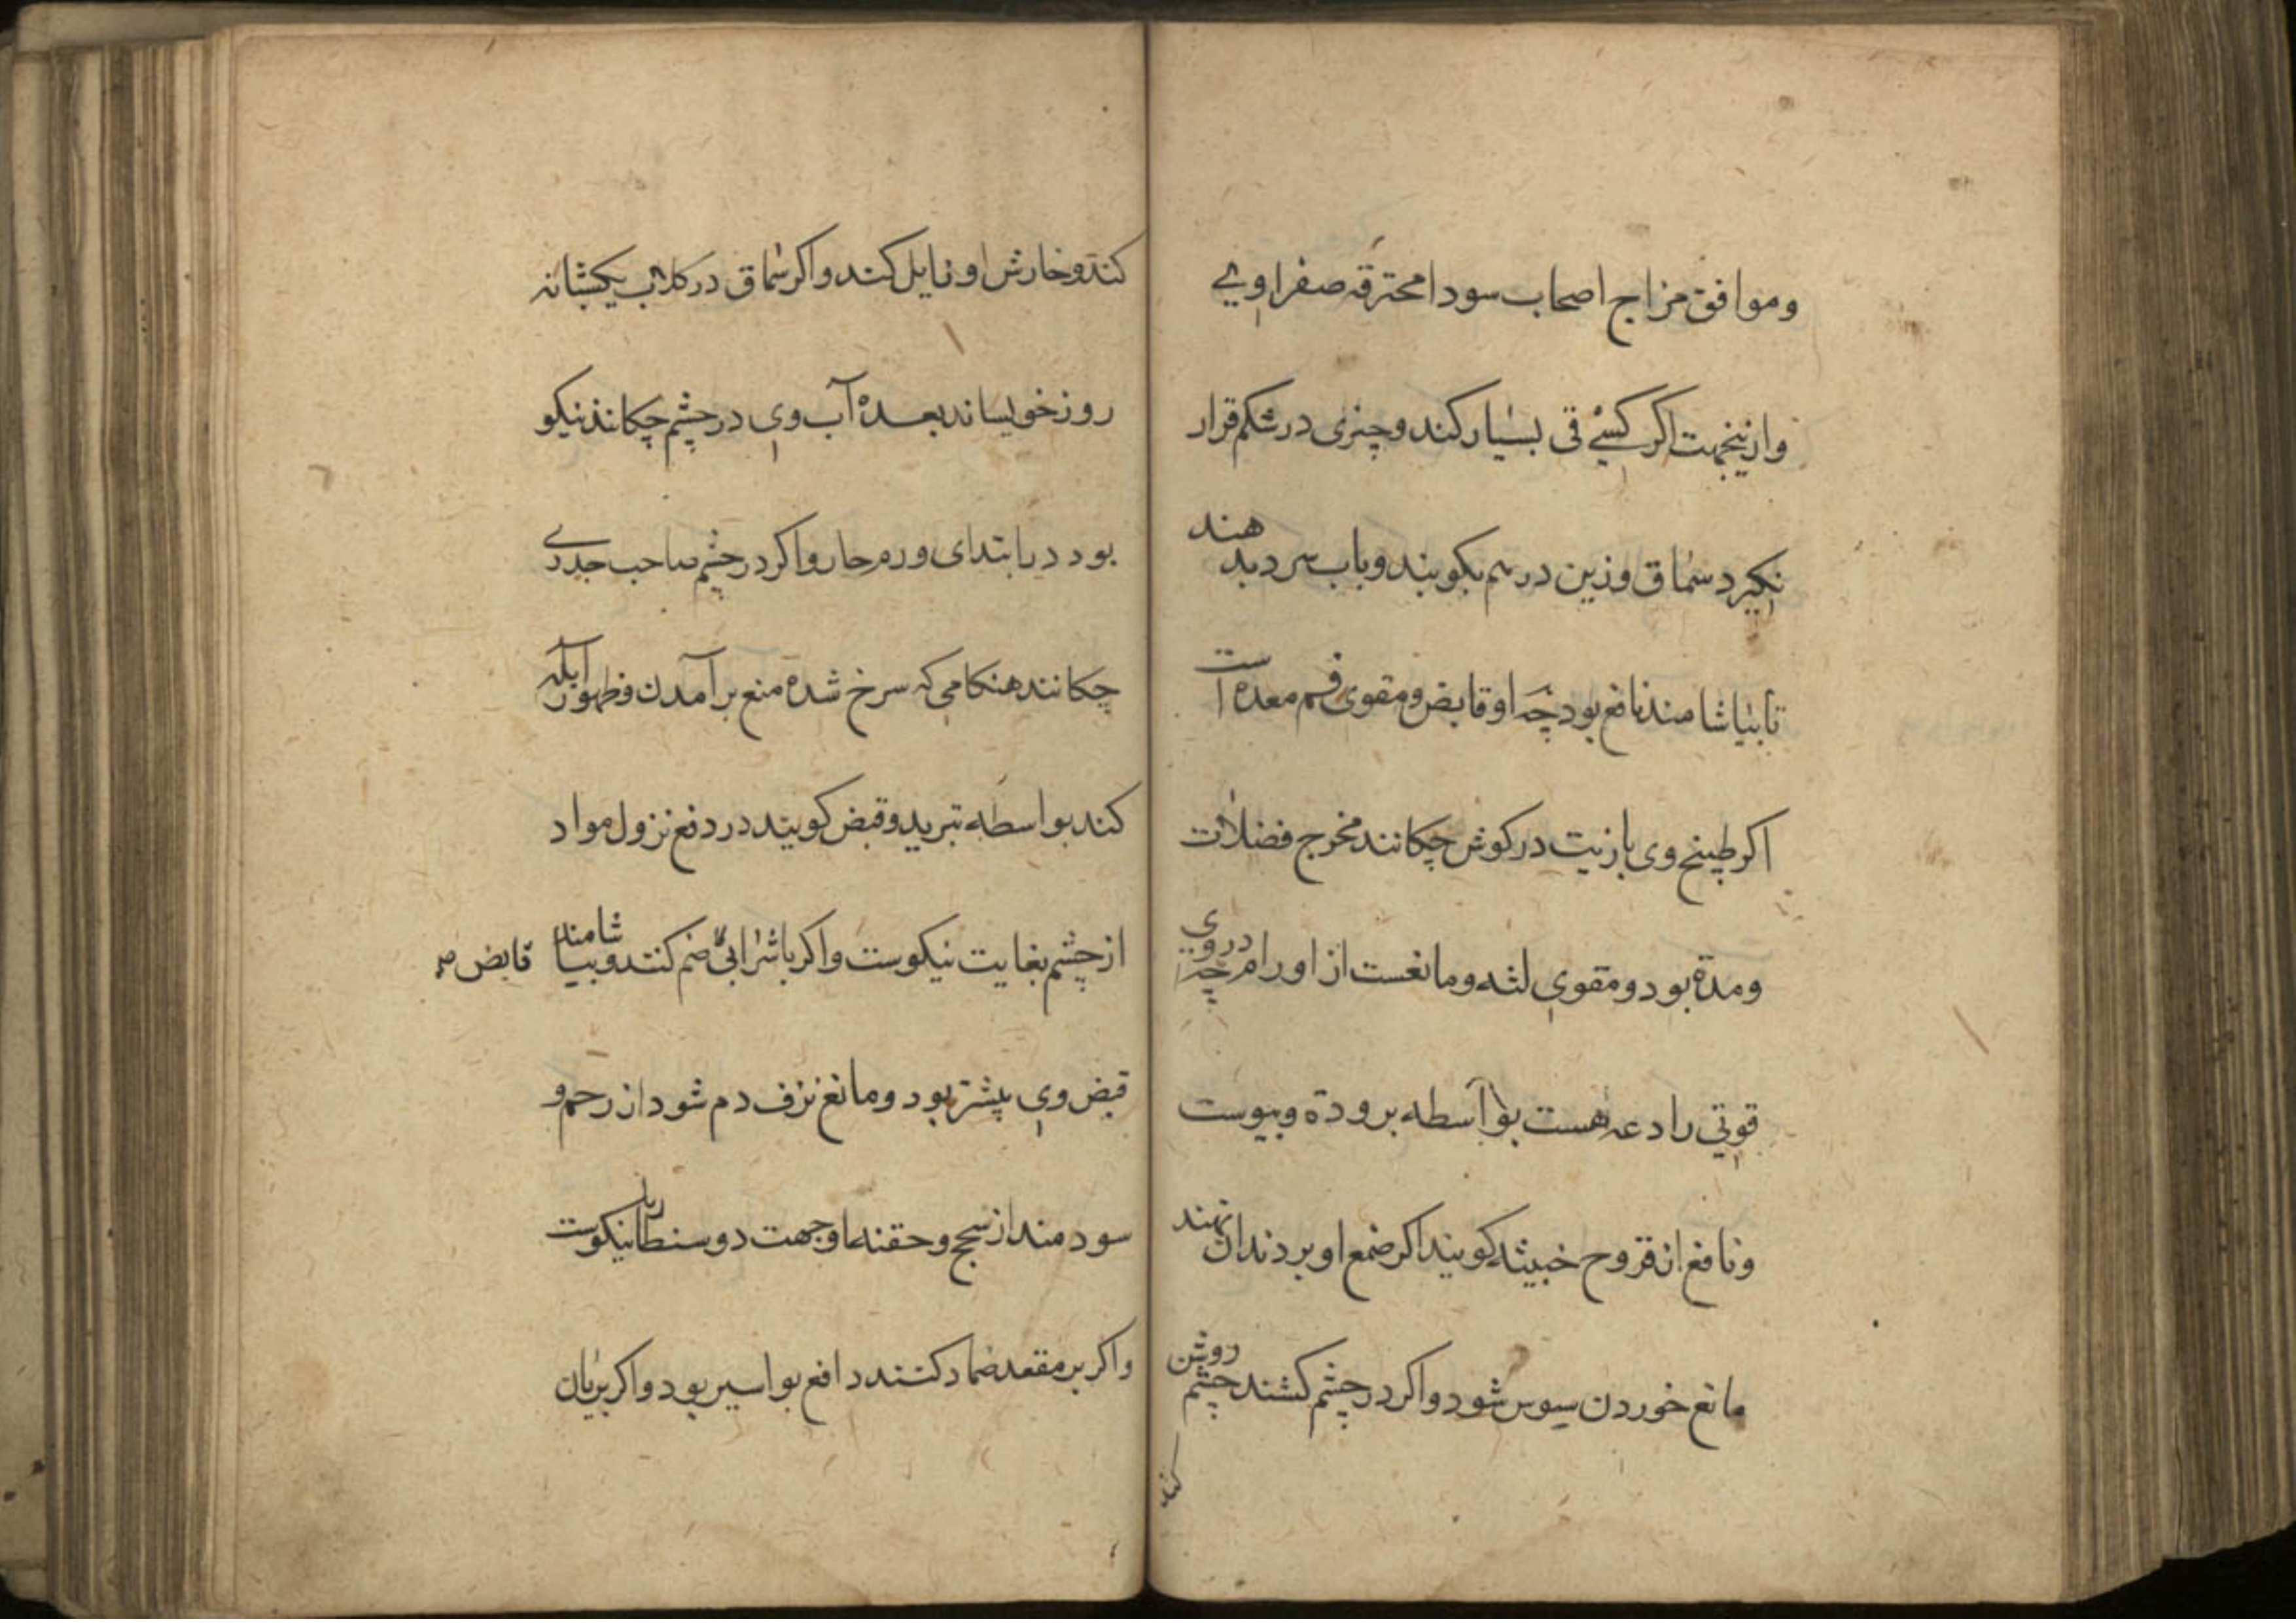 وموافق مزاج اصحاب سودا محترقه صفراویے
وازینجهت اکر کسیٔ قی بسیار کند وچیزی در شکم قرار
نکیرد سماق وزین درهم بکوبند وباب سرد بدهند
تا بیاشامند نافع بود چه او قابض ومقوی فم معده است
اکر طبیخ وی بازیت در کوش چکانند مخرج فضلات
ومدة بود ومقوی لثه ومانعست از اورام چه دروی
قوتی رادعه هست بواسطه برودة ویبوست
ونافع از قروح خبیثه کویند اکر ضمغ او بر دندان نهند
مانع خوردن سوس شود واکر در چشم کشند چشم روشن
کند
کند وخارش او زایل کند واکر سماق در کلاب یکشبانه
روز خویساند بعده آب وی در چشم چکانند نیکو
بود در ابتدای ورم حار واکر در چشم صاحب جدری
چکانند هنکامی که سرخ شده منع برآمدن وظهور آبله
کند بواسطه تبرید وقبض کویند در دفع نزول مواد
از چشم بغایت نیکوست واکر باشرابی ضم کنند وبیاشامند قابض
قبض وی بیشتر بود ومانع نزف دم شود از رحم و
سودمند از سحج وحقنه او جهت دوسنطاریا نیکوست
واکر بر مقعد ضماد کنند دافع بواسیر بود واکر بریان